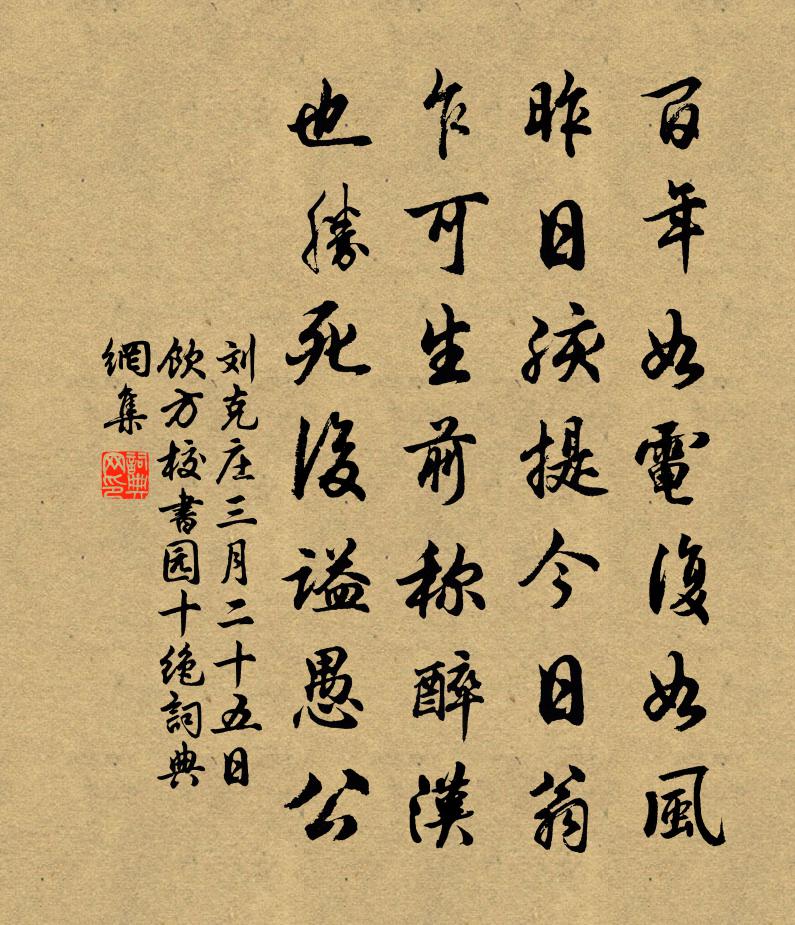 百年如電復如風
昨日孩提今日翁
乍可生前称醉漢
也勝死後謚愚公
刘克庄三月二十五日
飲方校書园十绝詞典
網集
詞典网印